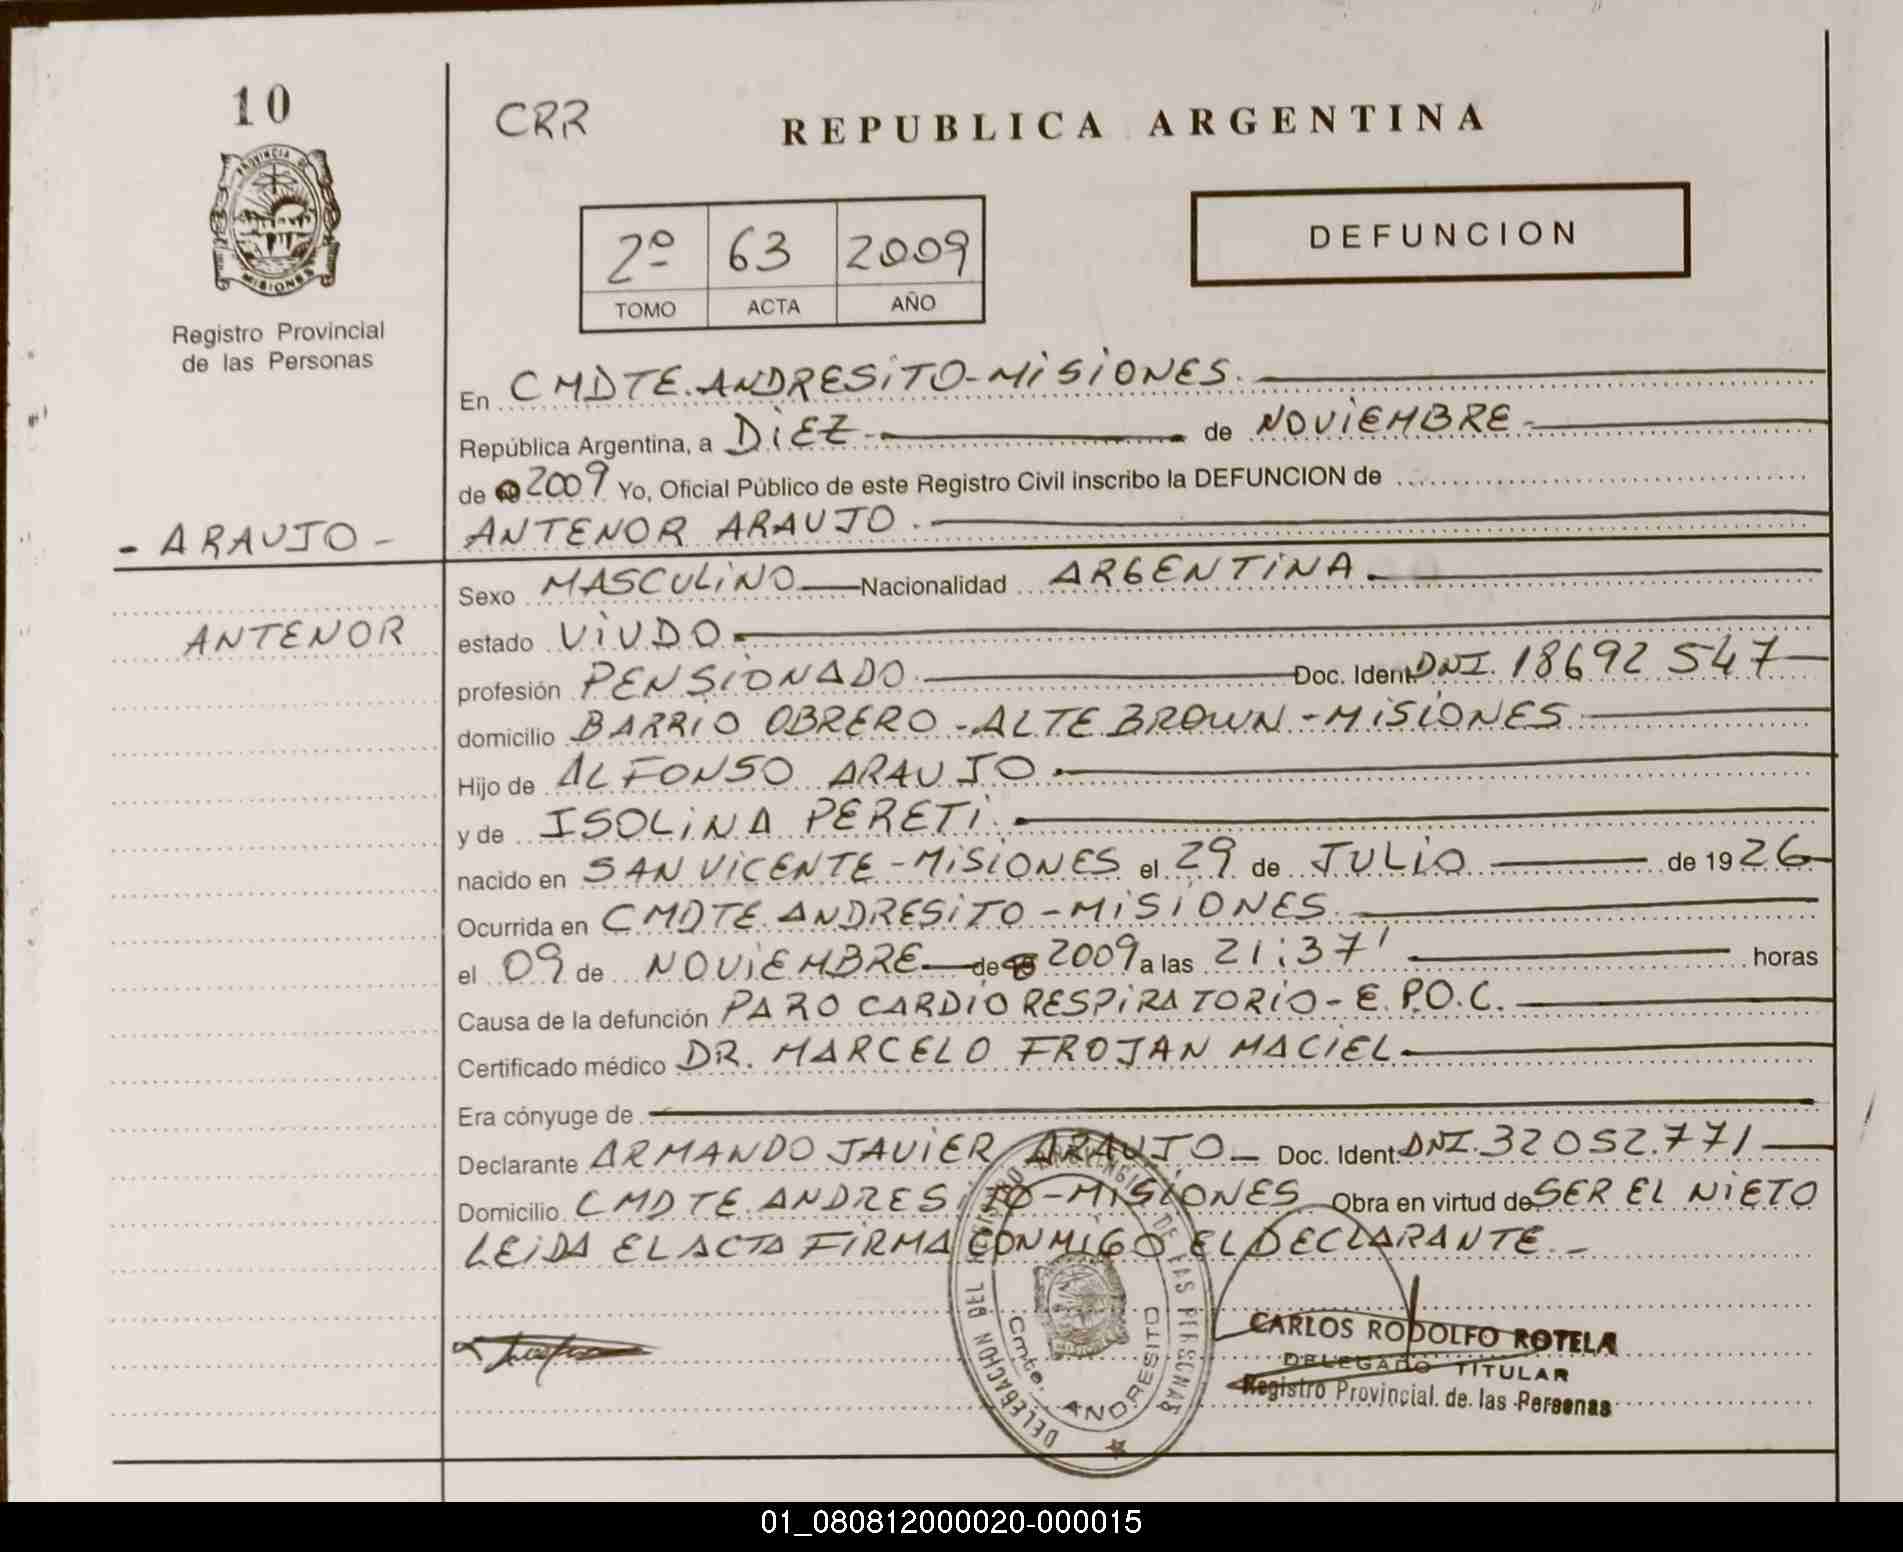 10
CRR
REPUBLICA ARGENTINA
PROVINCIA DE
MISIONES
Registro Provincial
de las Personas
2º 63 2009
TOMO ACTA AÑO
DEFUNCION
En CMDTE. ANDRESITO-MISIONES.
República Argentina, a DIEZ. de NOVIEMBRE
de 2009 Yo, Oficial Público de este Registro Civil inscribo la DEFUNCION de
- ARAUJO - ANTENOR ARAUJO.
Sexo MASCULINO Nacionalidad ARGENTINA.
ANTENOR estado VIUDO.
profesión PENSIONADO. Doc. Ident. DNI. 18692 547
domicilio BARRIO OBRERO-ALTE BROWN-MISIONES.
Hijo de ALFONSO ARAUJO.
y de ISOLINA PERETI.
nacido en SAN VICENTE-MISIONES el 29 de JULIO de 1926
Ocurrida en CMDTE. ANDRESITO-MISIONES.
el 09 de NOVIEMBRE de 2009 a las 21:37' horas
Causa de la defunción PARO CARDIO RESPIRATORIO-E.P.O.C.
Certificado médico DR. MARCELO FROJAN MACIEL.
Era cónyuge de
Declarante ARMANDO JAVIER ARAUJO Doc. Ident. DNI. 32052.771
Domicilio CMDTE. ANDRESITO-MISIONES Obra en virtud de SER EL NIETO
LEIDA EL ACTA FIRMA CONMIGO EL DECLARANTE.-
DELEGACION DEL REGISTRO PROVINCIAL DE LAS PERSONAS
Cmte. ANDRESITO
CARLOS RODOLFO ROTELA
DELEGADO TITULAR
Registro Provincial de las Personas
01_080812000020-000015